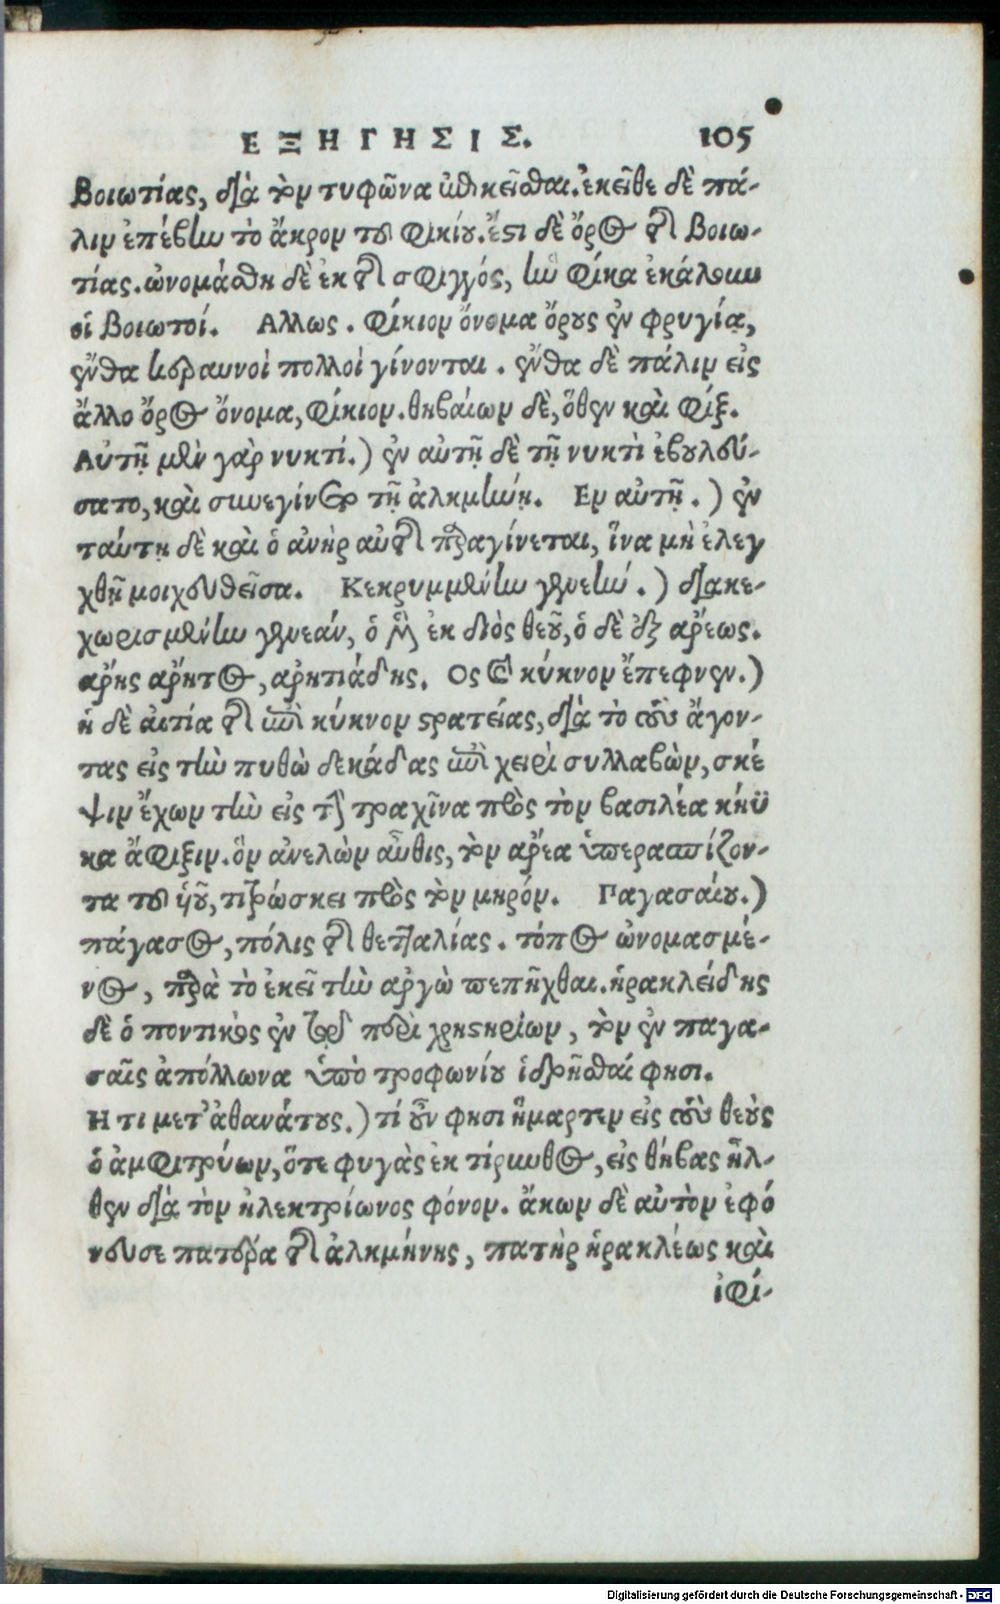 ΕΞΗΓΗΣΙΣ. 105
Βοιωτίας, διὰ τὸν τυφῶνα ἐπικεῖσθαι. ἐκεῖθε δὲ πά-
λιν ἐπέβην τὸ ἄκρον τοῦ φικίου. ἔστι δὲ ὄρος τῆς Βοιω-
τίας. ὠνομάσθη δὲ ἐκ τῆς σφιγγός, ἣν φίκα ἐκάλουν
οἱ Βοιωτοί. Αλλως. φίκιον ὄνομα ὄρους ἐν φρυγίᾳ,
ἔνθα κεραυνοὶ πολλοὶ γίνονται. ἔνθα δὲ πάλιν εἰς
ἄλλο ὄρος ὄνομα, φίκιον. θηβαίων δὲ, ὅθεν καὶ φίξ.
Αὐτῇ μὲν γὰρ νυκτί.) ἐν αὐτῇ δὲ τῇ νυκτὶ ἐβουλεύ-
σατο, καὶ συνεγίνετο τῇ ἀλκμήνῃ. Εν αὐτῇ.) ἐν
ταύτῃ δὲ καὶ ὁ ἀνὴρ αὐτῆς παραγίνεται, ἵνα μὴ ἐλεγ
χθῇ μοιχευθεῖσα. Κεκρυμμένην γενεήν.) διακε-
χωρισμένην γενεάν, ὁ μὲν ἐκ διὸς θεοῦ, ὁ δὲ ἐξ ἄρεως.
ἄρης ἄρητος, ἀρητιάδης. Ος καὶ κύκνον ἔπεφνεν.)
ἡ δὲ αἰτία τῆς ἐπὶ κύκνον στρατείας, διὰ τὸ τοὺς ἄγον-
τας εἰς τὴν πυθὼ δεκάδας ἐπὶ χειρὶ συλλαβὼν, σκέ
ψιν ἔχων τὴν εἰς τὴν τραχῖνα πρὸς τὸν βασιλέα κήϋ
κα ἄφιξιν. ὃν ἀνελὼν αὖθις, τὸν ἄρεα ὑπερασπίζον-
τα τοῦ υἱοῦ, τιτρώσκει πρὸς τὸν μηρόν. Παγασαίου.)
πάγασος, πόλις τῆς θετταλίας. τόπος ὠνομασμέ-
νος, παρὰ τὸ ἐκεῖ τὴν ἀργὼ πεπῆχθαι. ἡρακλείδης
δὲ ὁ ποντικὸς ἐν τῷ περὶ χρηστηρίων, τὸν ἐν παγα-
σαῖς ἀπόλλωνα ὑπὸ τροφωνίου ἱδρῆσθαί φησι.
Η τι μετ' ἀθανάτους.) τί οὖν φησι ἥμαρτεν εἰς τοὺς θεοὺς
ὁ ἀμφιτρύων, ὅτε φυγὰς ἐκ τίρυνθος, εἰς θήβας ἦλ-
θεν διὰ τὸν ἠλεκτρίωνος φόνον. ἄκων δὲ αὐτὸν ἐφό
νευσε πατέρα τῆς ἀλκμήνης, πατὴρ ἡρακλέως καὶ
ἰφι-
Digitalisierung gefördert durch die Deutsche Forschungsgemeinschaft - DFG